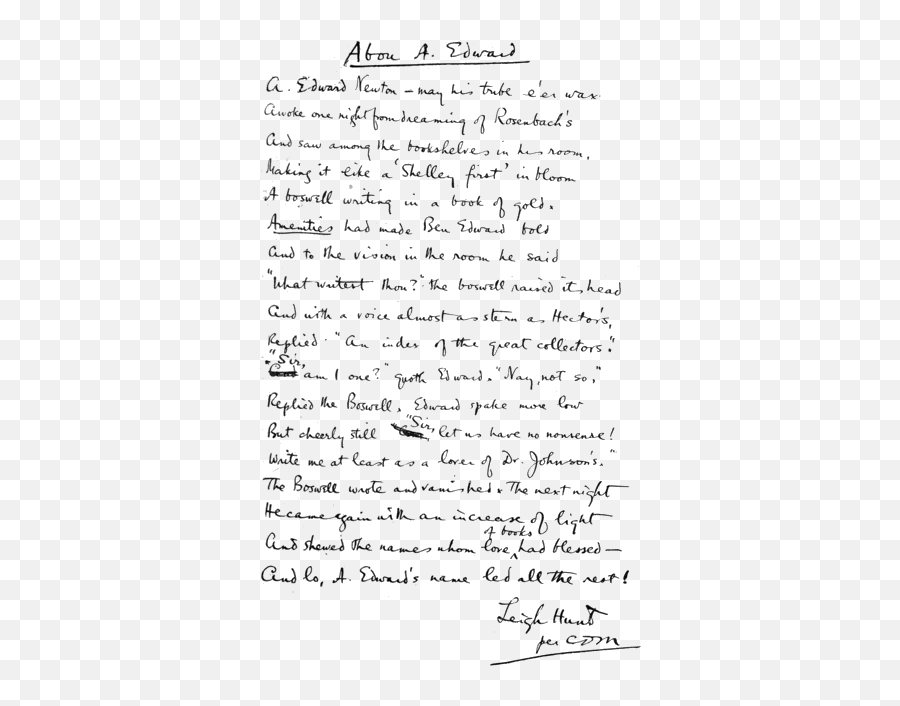 Abou A. Edward
A. Edward Newton – may his tribe e'er wax
Awoke one night from dreaming of Rosenbach's
And saw among the bookshelves in his room,
Making it like a 'Shelley first' in bloom
A boswell writing in a book of gold.
Amenities had made Ben Edward bold
And to the vision in the room he said
"What writest thou?" The boswell raised its head
And with a voice almost as stern as Hector's,
Replied "An index of the great collectors."
"Sir,
am I one?" quoth Edward. "Nay, not so,"
Replied the Boswell. Edward spake more low
But cheerly still "Sir, let us have no nonsense!
Write me at least as a lover of Dr. Johnson's."
The Boswell wrote and vanished. The next night
He came again with an increase of light
of books
And shewed the names whom love ^ had blessed —
And lo, A. Edward's name led all the rest!
Leigh Hunt
per CDM